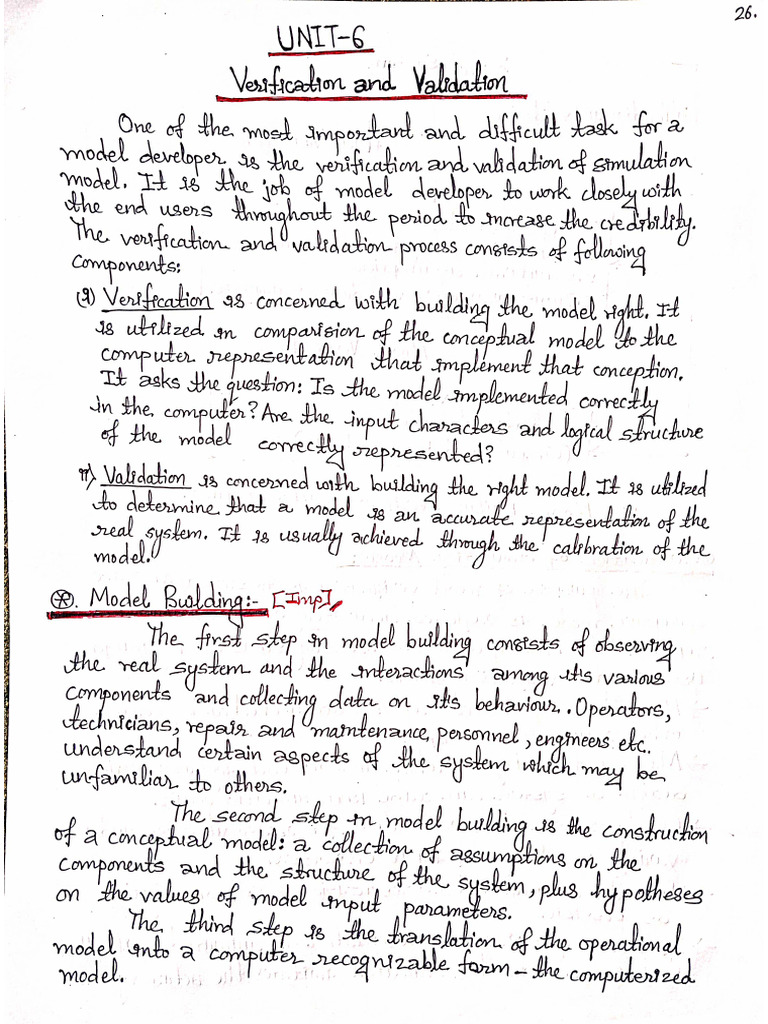 26.
UNIT-6
Verification and Validation
One of the most important and difficult task for a
model developer is the verification and validation of simulation
model. It is the job of model developer to work closely with
the end users throughout the period to increase the credibility.
The verification and validation process consists of following
components:
(i) Verification is concerned with building the model right. It
is utilized in comparision of the conceptual model to the
computer representation that implement that conception.
It asks the question: Is the model implemented correctly
in the computer? Are the input characters and logical structure
of the model correctly represented?
ii) Validation is concerned with building the right model. It is utilized
to determine that a model is an accurate representation of the
real system. It is usually achieved through the calibration of the
model.
⊛. Model Building:- [Imp]
The first step in model building consists of observing
the real system and the interactions among it's various
components and collecting data on it's behaviour. Operators,
technicians, repair and maintenance personnel, engineers etc.
understand certain aspects of the system which may be
unfamiliar to others.
The second step in model building is the construction
of a conceptual model: a collection of assumptions on the
components and the structure of the system, plus hypotheses
on the values of model input parameters.
The third step is the translation of the operational
model into a computer recognizable form - the computerized
model.